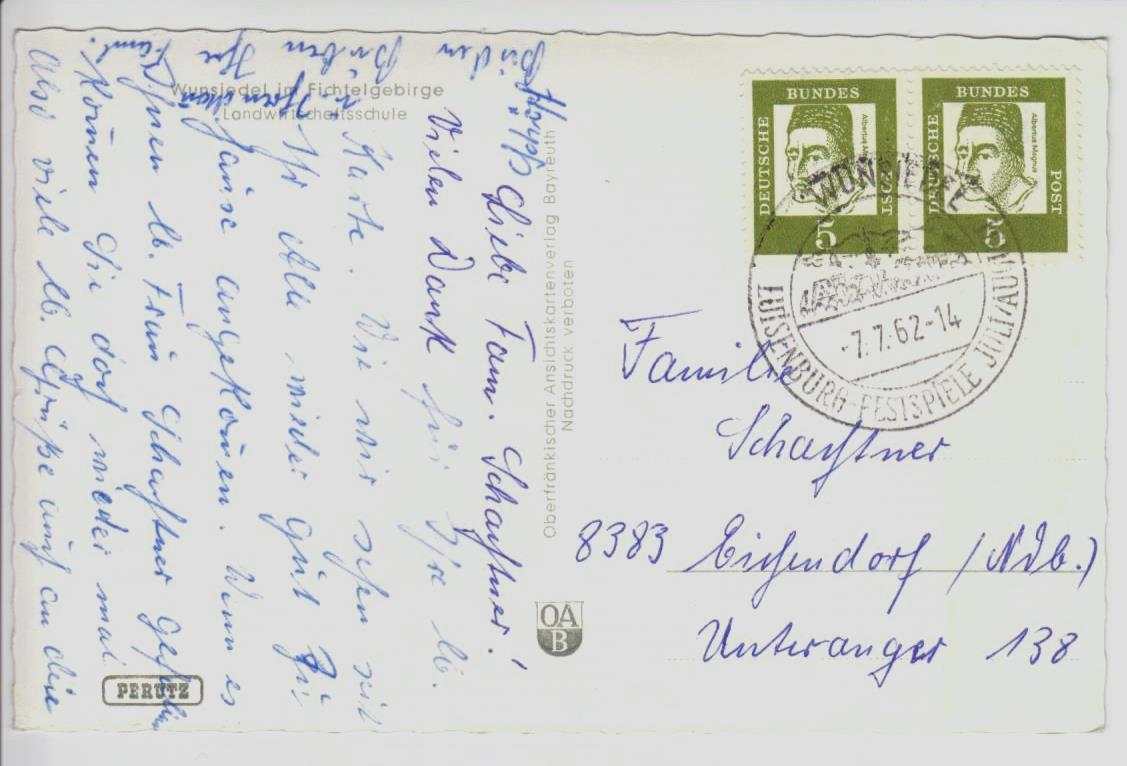 Wunsiedel im Fichtelgebirge
Landwirtschaftsschule
Liebe Fam. Schaftner!
Vielen Dank für Ihre lb.
Karte. Wie wir sehen seit
Ihr Alle wieder gut zu
Hause angekomen. Wenn es
Ihnen lb. Frau Schaftner
Könen Sie doch wieder mal.
Also viele lb. Grüße auch an die
Oberfränkischer Ansichtskartenverlag Bayreuth
Nachdruck verboten
OA
B
PERUTZ
DEUTSCHE BUNDES POST
Albertus Magnus
5
DEUTSCHE BUNDES POST
Albertus Magnus
5
WUNSIEDEL
-7.7.62-14
LUISENBURG-FESTSPIELE JULI/AUG
Familie
Schaftner
8383 Eichendorf (Ndb.)
Unteranger 138